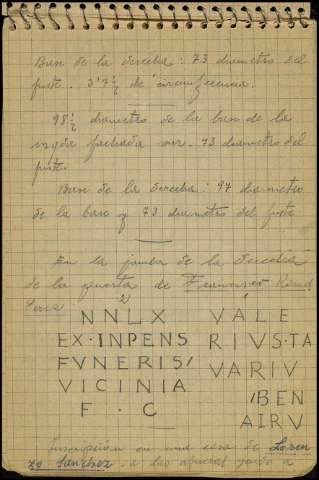 Base de la derecha: 73 diametro del
fuste. 3'7½ de circunferencia.
98½ diametro de la base de la
izqda fachada 73 diametro del
fuste.
Base de la derecha: 97 diametro
de la base y 73 diametro del fuste
En la jamba de la derecha
de la puerta de Francisco
NNLX
EX·INPENS
FVNERIS/
VICINIA
F · C
VALE
RIVS·TA
VARIV
/BEN
AIRV
Inscripción en una casa de Loren
zo Sanchez. a las afueras junto a